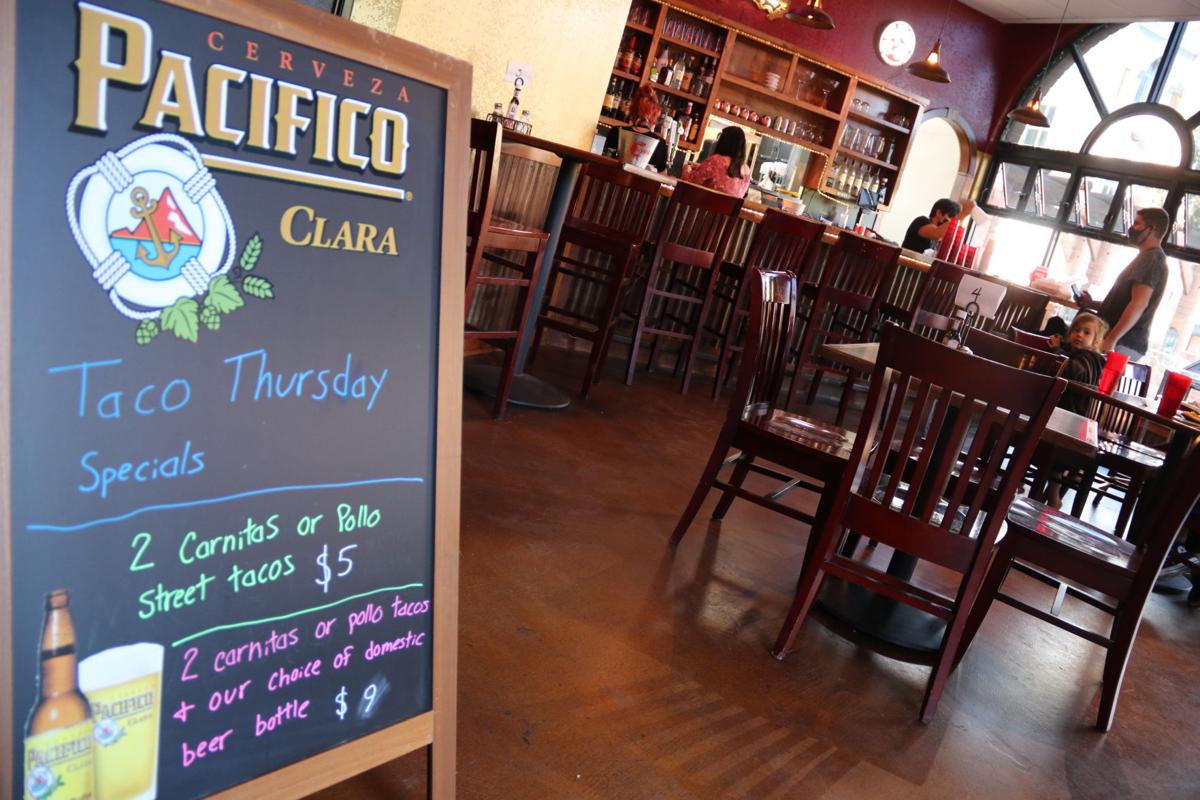 CERVEZA
PACIFICO
CLARA
Taco Thursday
Specials
2 Carnitas or Pollo
street tacos $5
2 carnitas or pollo tacos
+ our choice of domestic
beer bottle $9
PACIFICO
CLARA
PACIFICO
CLARA
4